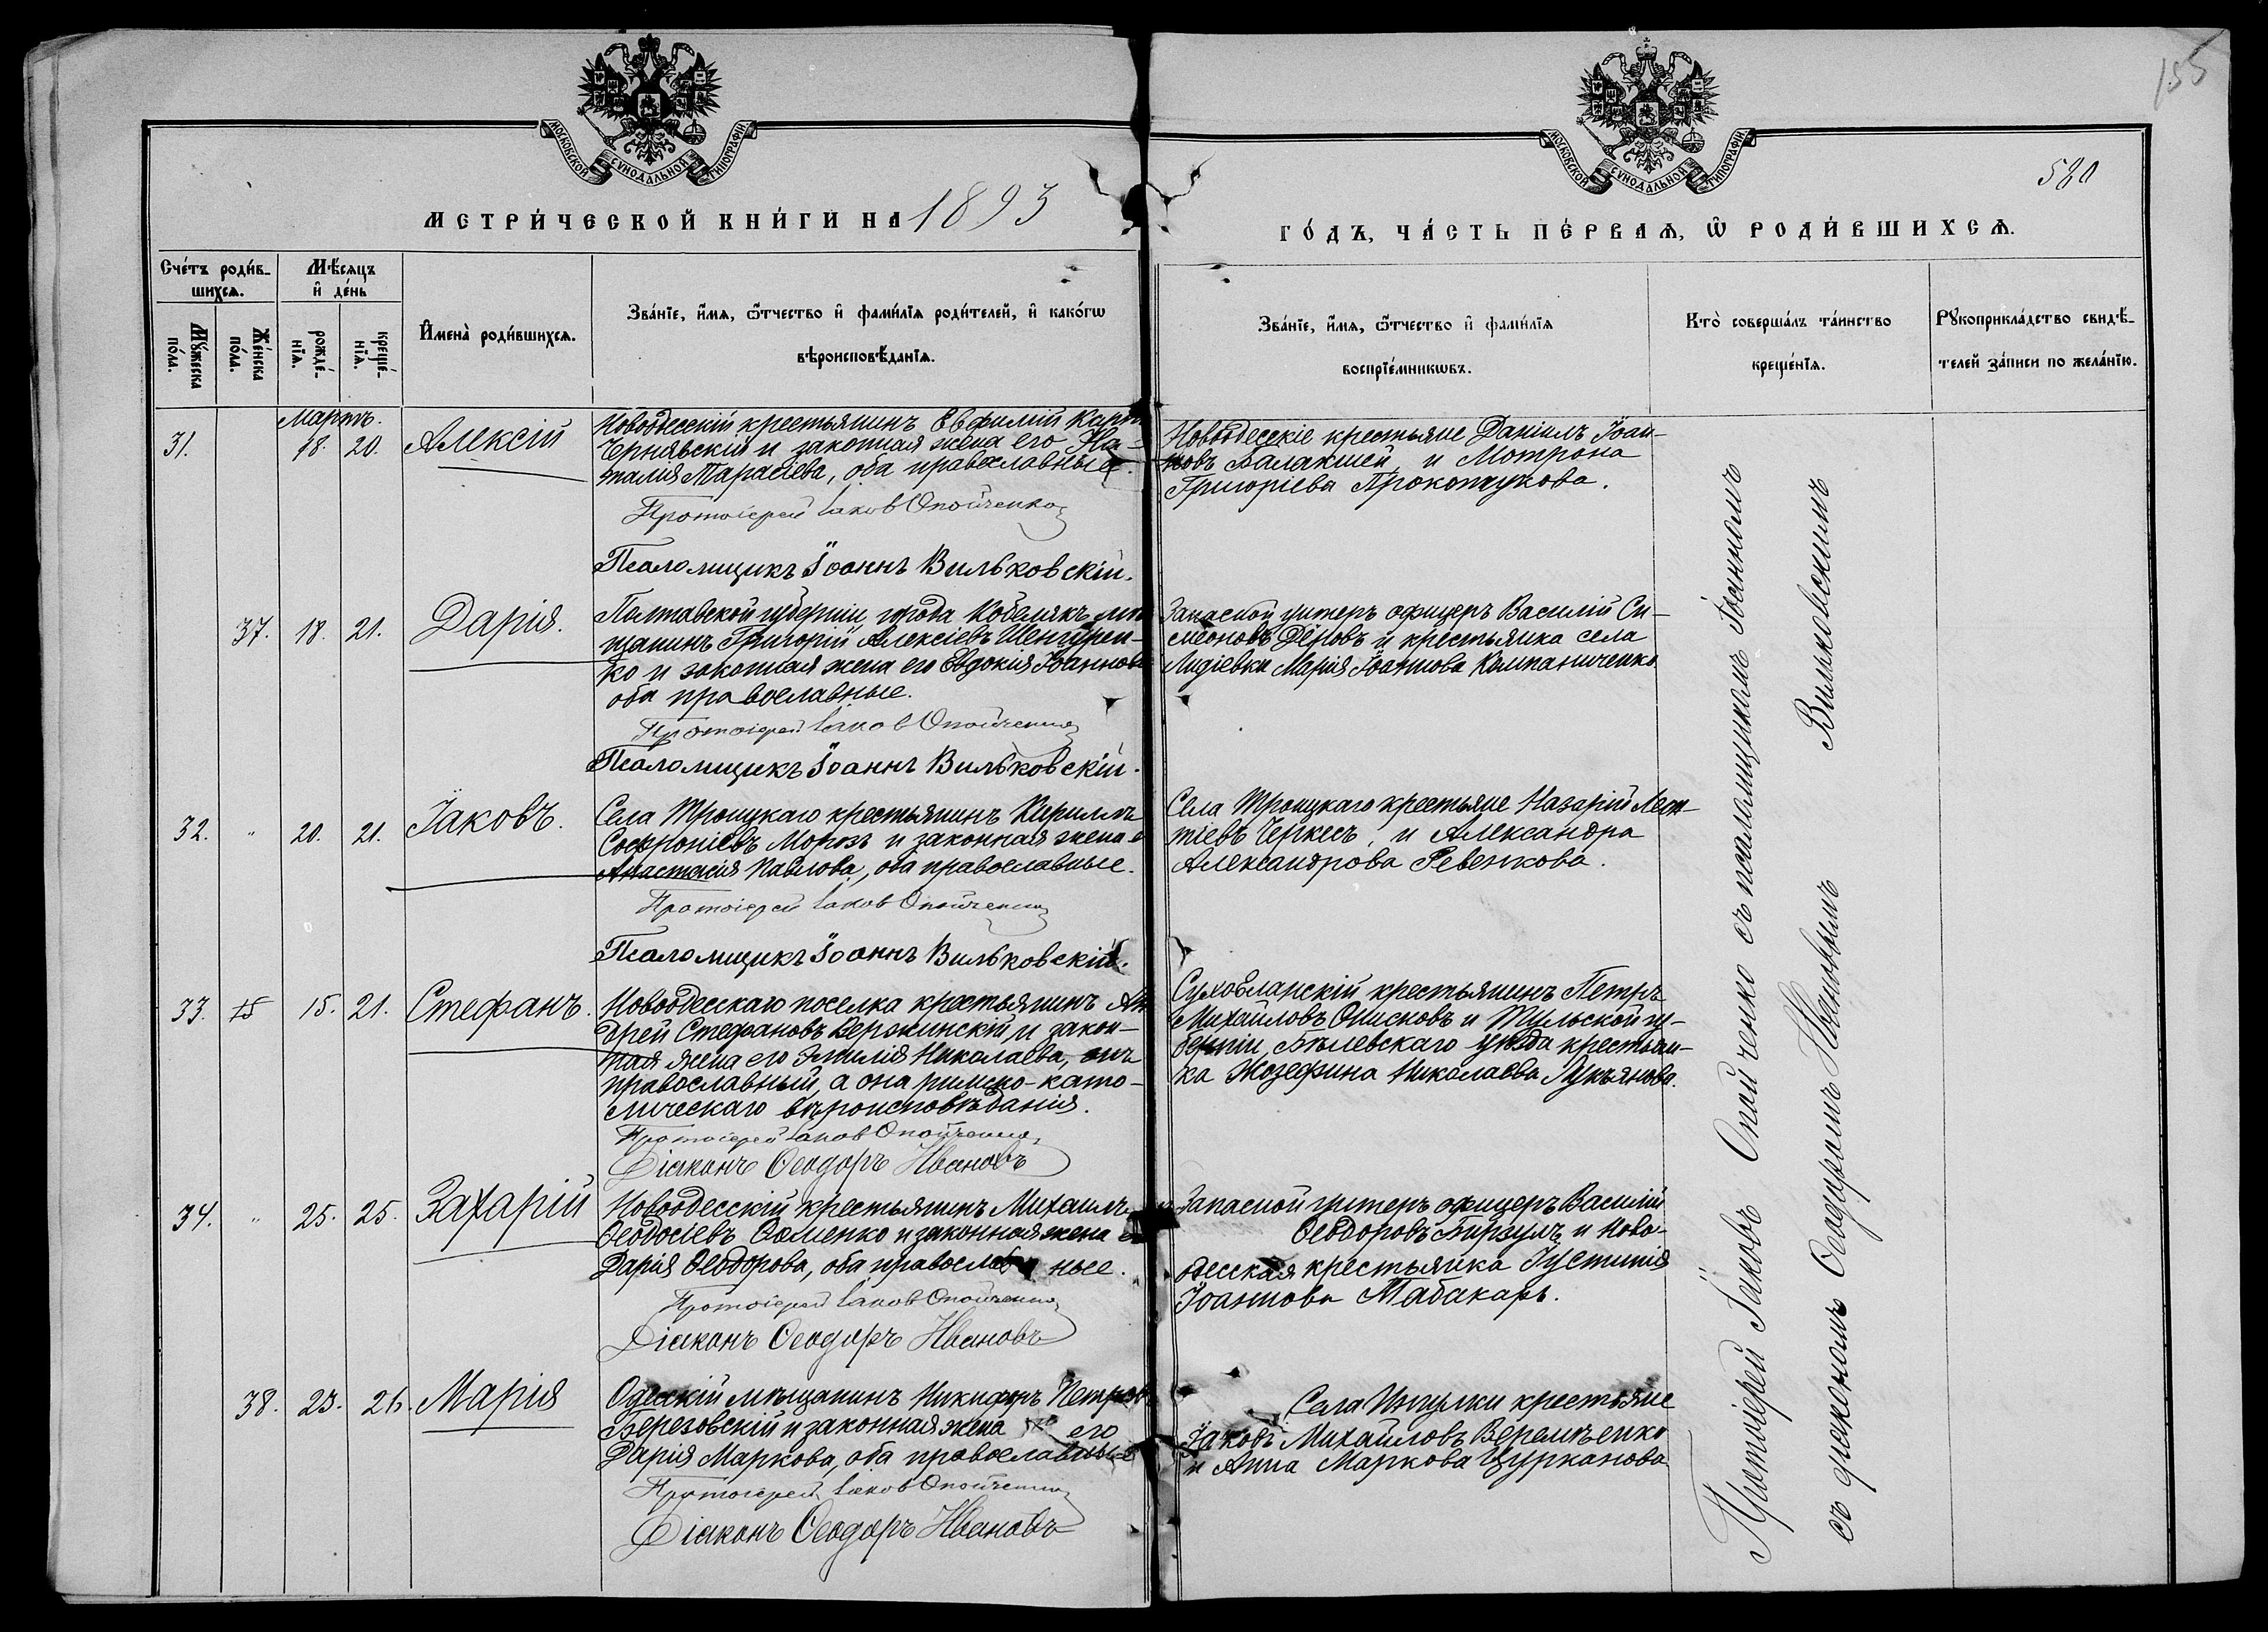 155
580
МОСКОВСКОЙ СѴНОДАЛЬНОЙ ТИПОГРАФІИ
МОСКОВСКОЙ СѴНОДАЛЬНОЙ ТИПОГРАФІИ
МЕТРИ́ЧЕСКОЙ КНИ́ГИ НА 1893
ГО́ДЪ, ЧА́СТЬ ПЕ́РВАѦ, Ѡ҆ РОДИ́ВШИХСѦ.
Сче́тъ роди́в-
шихсѧ.
Мѣ́сѧцъ
и҆ де́нь
Му́жеска
по́ла.
Же́нска
по́ла.
рожде́-
нїѧ.
креще́-
нїѧ.
И҆мена̀ роди́вшихсѧ.
Зва́нїе, и҆́мѧ, ѻ҆́тчество и҆ фами́лїѧ роди́телей, и҆ како́гѡ
вѣроисповѣ́данїѧ.
Зва́нїе, и҆́мѧ, ѻ҆́тчество и҆ фами́лїѧ
воспрїе́мникѡвъ.
Кто̀ соверша́лъ та́инство
креще́нїѧ.
Рꙋкоприкла́дство свидѣ́-
телей за́писи по жела́нїю.
Мартъ.
31. 18. 20. Алексій
Новоодесскій крестьянинъ Евфимій Карп
Чернявскій и законная жена его На-
талія Тарасіева, оба православные.
Протоіерей Іаков Опойченко
Псаломщикъ Іоаннъ Вильковскій.
Новоодесскіе крестьяне Даніилъ Іоан-
новъ Балакшей, и Мотрона
Григоріева Прокопчукова.
37. 18. 21. Дарія.
Полтавской губерніи, города Кобелякъ мѣ
щанинъ Григорій Алексіевъ Шенгурен-
ко и законная жена его Евдокія Іоаннова
оба православные.
Протоіерей Іаков Опойченко
Псаломщикъ Іоаннъ Вильковскій.
Запасной унтеръ офицеръ Василій Си-
меоновъ Дѣновъ и крестьянка села
Лидіевки Марія Іоаннова Компаниченко
32. " 20. 21. Іаковъ.
Села Троицкаго крестьянинъ Кириллъ
Софроніевъ Морозъ и законная жена е
Анастасія Павлова, оба православные.
Протоіерей Іаков Опойченко
Псаломщикъ Іоаннъ Вильковскій.
Села Троицкаго крестьяне Назарій Леон-
тіевъ Черкесъ, и Александра
Александрова Ревенкова.
33. 15. 21. Стефанъ.
Новоодесскаго поселка крестьянинъ Ан
дрей Стефановъ Вержинскій, и закон-
ная жена его Эмилія Николаева, онъ
православный, а она римско-като-
лическаго вѣроисповѣданія.
Протоіерей Іаков Опойченко
Діаконъ Ѳеодоръ Ивановъ
Сухоеланскій крестьянинъ Петръ
Михайловъ Онисковъ и Тульской гу-
берніи, Бѣлевскаго уѣзда крестьян-
ка Жозефина Николаева Лукьянова.
34. " 25. 25. Захарій
Новоодесскій крестьянинъ Михаилъ
Ѳеодосіевъ Ѳоменко и законная жена е
Дарія Ѳеодорова, оба православные.
Протоіерей Іаков Опойченко
Діаконъ Ѳеодоръ Ивановъ
Запасной унтеръ офицеръ Василій
Ѳеодоровъ Бирзулъ и ново-
одесская крестьянка Іустинія
Іоаннова Табакарь.
38. 23. 26. Марія
Одесскій мѣщанинъ Никифоръ Петровъ
Березовскій и законная жена его
Дарія Маркова, оба православные
Протоіерей Іаков Опойченко
Діаконъ Ѳеодоръ Ивановъ
Села Ингулки крестьяне
Іаковъ Михайловъ Веремѣенко
и Анна Маркова Цурканова
Протоіерей Іаковъ Опойченко съ псаломщикомъ Іоанномъ
Вильковскимъ
съ діакономъ Ѳеодоромъ Ивановымъ